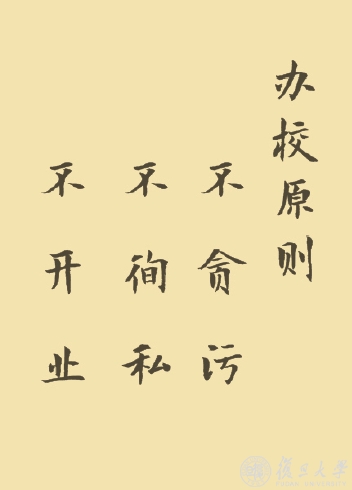 办校原则
不贪污
不徇私
不开业
复旦大学